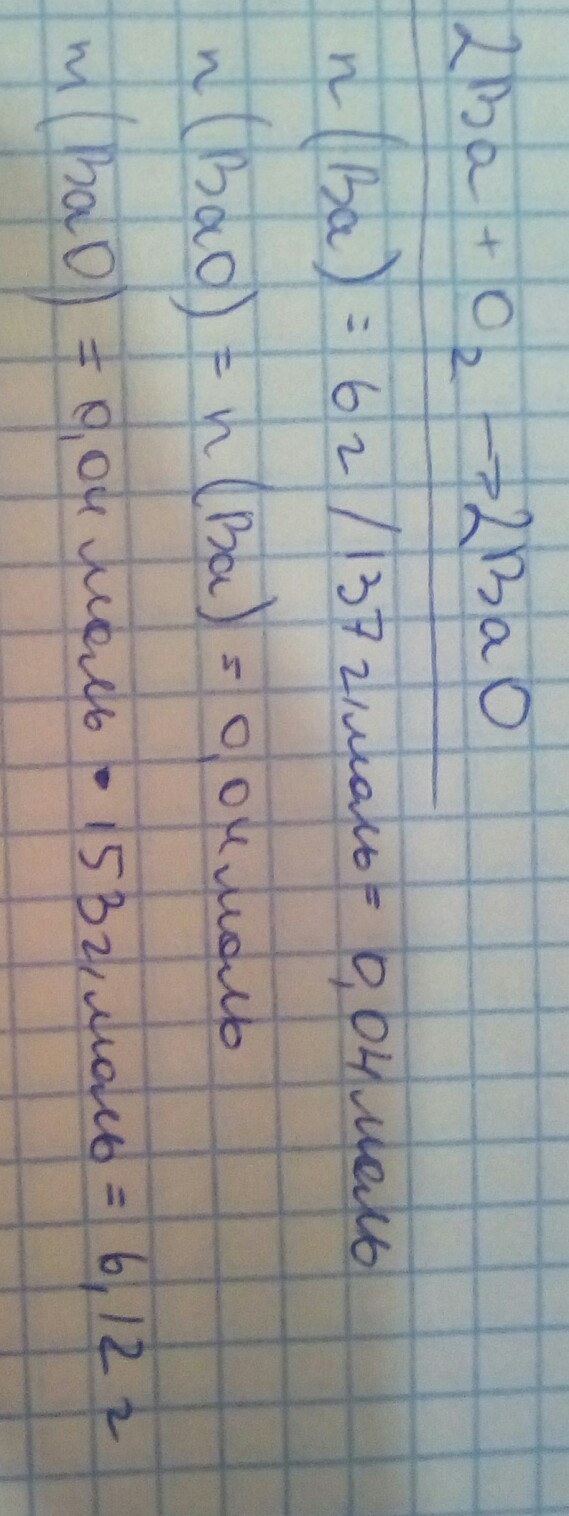 2Ba + O₂ → 2BaO
n(Ba) = 6 г / 137 г/моль = 0,04 моль
n(BaO) = n(Ba) = 0,04 моль
m(BaO) = 0,04 моль • 153 г/моль = 6,12 г